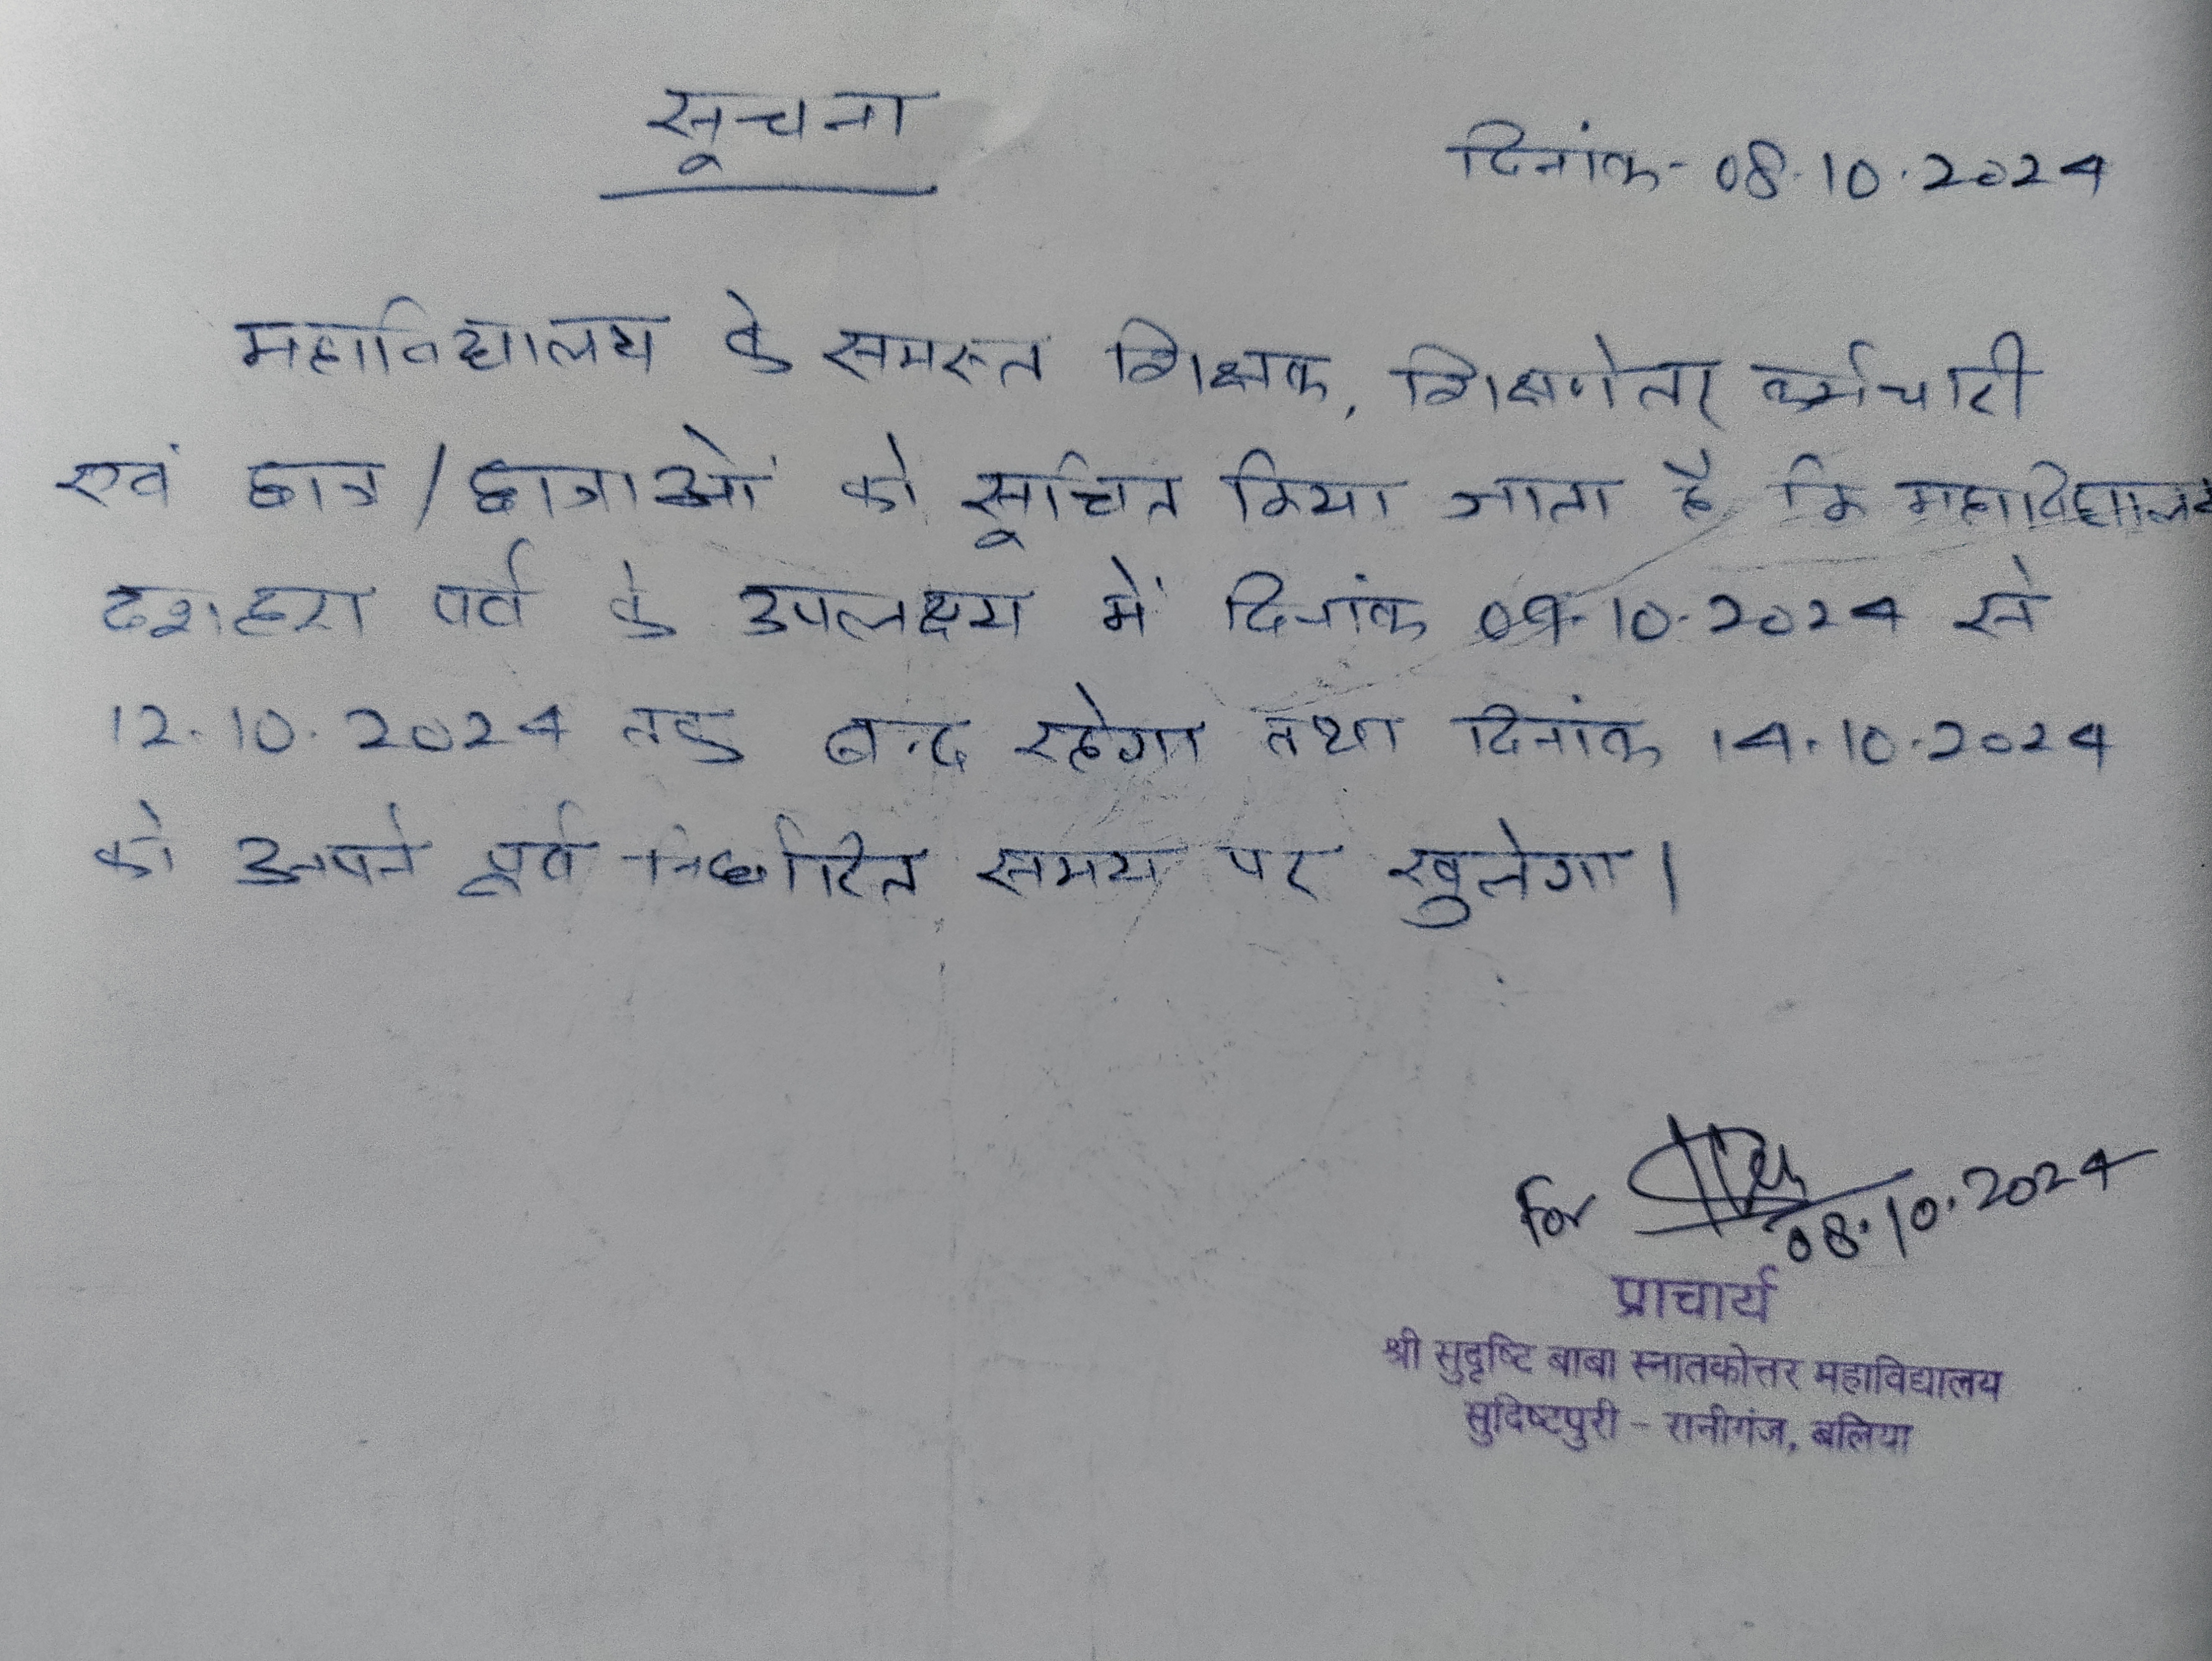 सूचना
दिनांक- 08.10.2024
महाविद्यालय के समस्त शिक्षक, शिक्षणेतर कर्मचारी
एवं छात्र/छात्राओं को सूचित किया जाता है कि महाविद्यालय
दशहरा पर्व के उपलक्ष्य में दिनांक 09.10.2024 से
12.10.2024 तक बन्द रहेगा तथा दिनांक 14.10.2024
को अपने पूर्व निर्धारित समय पर खुलेगा।
for
08.10.2024
प्राचार्य
श्री सुदृष्टि बाबा स्नातकोत्तर महाविद्यालय
सुदिष्टपुरी - रानीगंज, बलिया